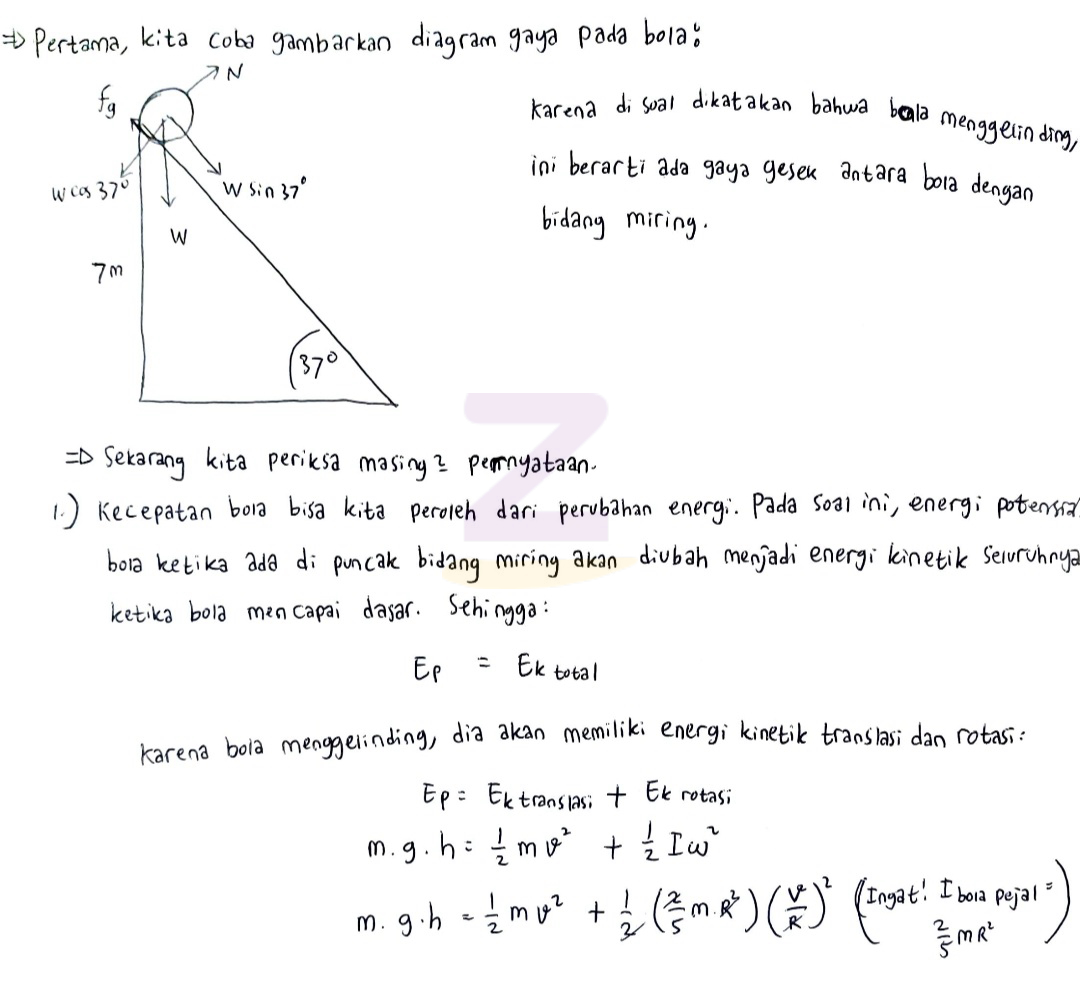 ⇒ Pertama, kita coba gambarkan diagram gaya pada bola:
N
fg
W cos 37°
W sin 37°
W
7m
37°
Karena di soal dikatakan bahwa bola menggelinding,
ini berarti ada gaya gesek antara bola dengan
bidang miring.
⇒ Sekarang kita periksa masing2 pernyataan.
1.) Kecepatan bola bisa kita peroleh dari perubahan energi. Pada soal ini, energi potensial
bola ketika ada di puncak bidang miring akan diubah menjadi energi kinetik seluruhnya
ketika bola mencapai dasar. Sehingga:
Ep = Ek total
Karena bola menggelinding, dia akan memiliki energi kinetik translasi dan rotasi:
Ep = Ek translasi + Ek rotasi
m.g.h = 1/2 mv² + 1/2 Iω²
m.g.h = 1/2 mv² + 1/2 (2/5 m.R²)(v/R)² (Ingat! I bola pejal = 2/5 mR²)